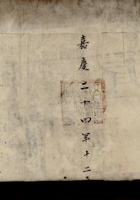 嘉慶二十四年十二